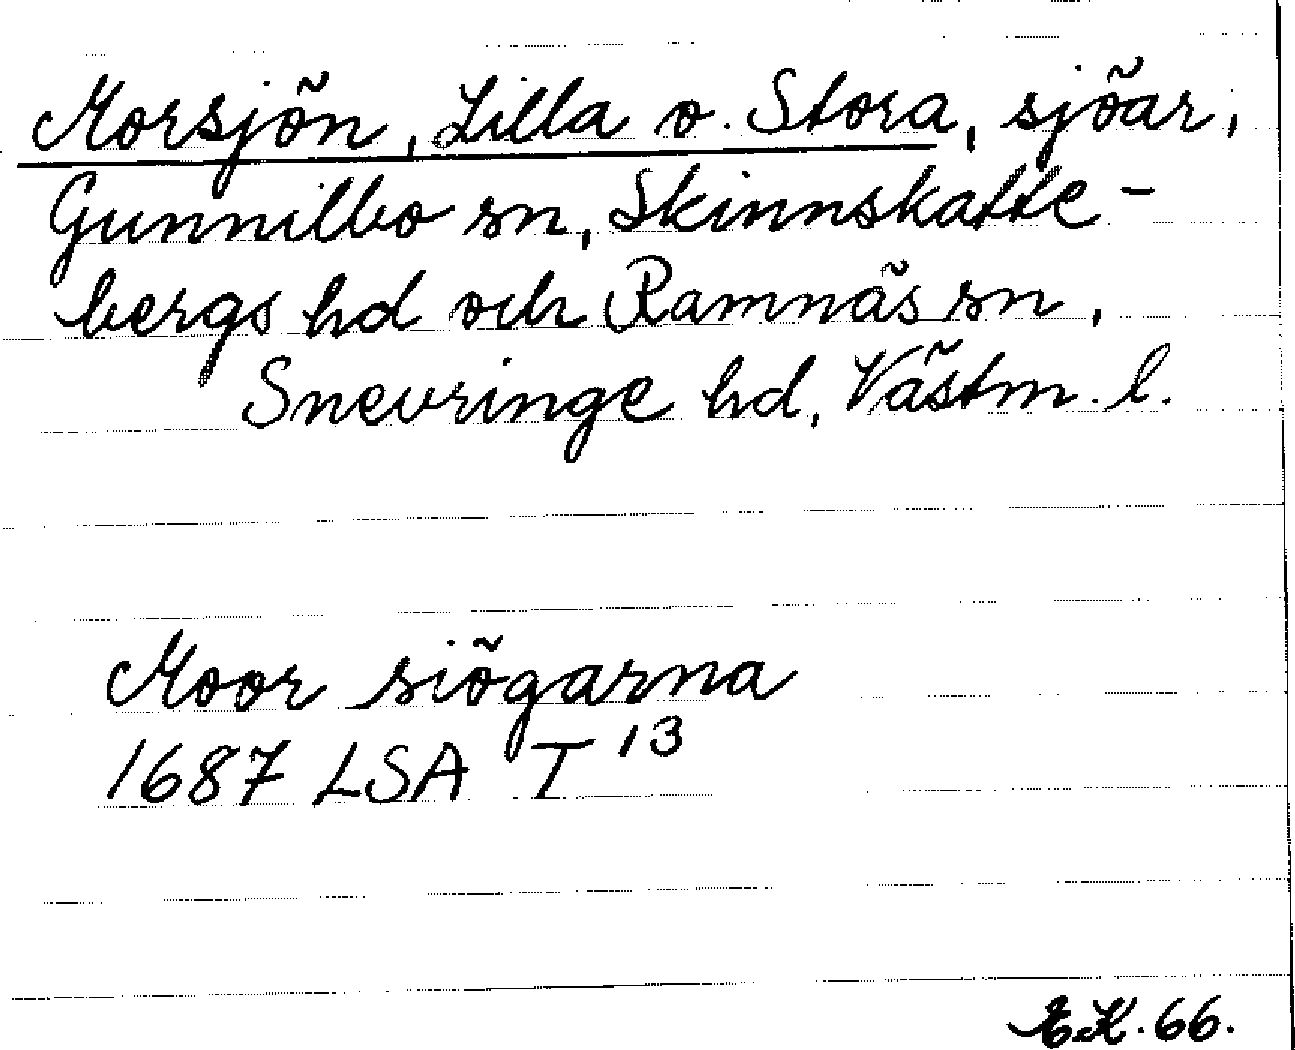 Morsjön, Lilla o. Stora, sjöar,
Gunnilbo sn, Skinnskatte-
bergs hd och Ramnäs sn,
Snevringe hd, Västm. l.
Moor siögarna
1687 LSA T 13
E.K. 66.